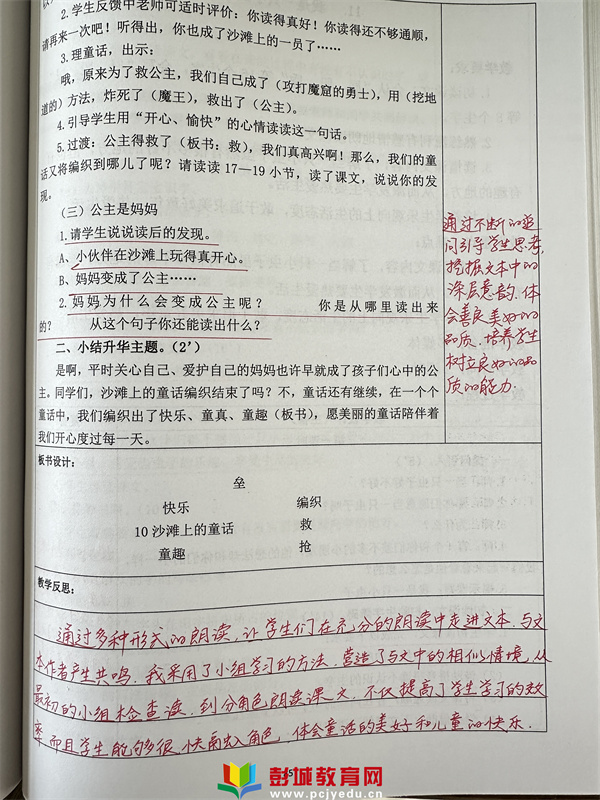 2.学生反馈中老师可适时评价：你读得真好！你读得还不够通顺，
请再来一次吧！听得出，你也成了沙滩上的一员了……
3.理童话，出示：
哦，原来为了救公主，我们自己成了（攻打魔窟的勇士），用（挖地
道的）方法，炸死了（魔王），救出了（公主）。
4.引导学生用“开心、愉快”的心情读读这一句话。
5.过渡：公主得救了（板书：救），我们真高兴啊！那么，我们的童
话又将编织到哪儿了呢？请读读 17—19 小节，读了课文，说说你的发
现。
（三）公主是妈妈
1.请学生说说读后的发现。
A、小伙伴在沙滩上玩得真开心。
B、妈妈变成了公主……
2.妈妈为什么会变成公主呢？ 你是从哪里读出来
的？ 从这个句子你还能读出什么？
二、小结升华主题。（2′）
是啊，平时关心自己、爱护自己的妈妈也许早就成了孩子们心中的公
主。同学们，沙滩上的童话编织结束了吗？不，童话还有继续，在一个个
童话中，我们编织出了快乐、童真、童趣（板书），愿美丽的童话陪伴着
我们开心度过每一天。
通过不断的追
问引导学生思考,
挖掘文本中的
深层意韵.体
会善良美好的
品质.培养学生
树立良好的品
质的能力.
板书设计：
垒
快乐 编织
10 沙滩上的童话 救
童趣 抢
教学反思：
通过多种形式的朗读,让学生们在充分的朗读中走进文本.与文
本作者产生共鸣.我采用了小组学习的方法.营造了与文中的相似情境,从
最初的小组检查读.到分角色朗读课文.不仅提高了学生学习的效
率而且学生能够很快融入角色.体会童话的美好和儿童的快乐.
彭城教育网
www.pcjyedu.cn